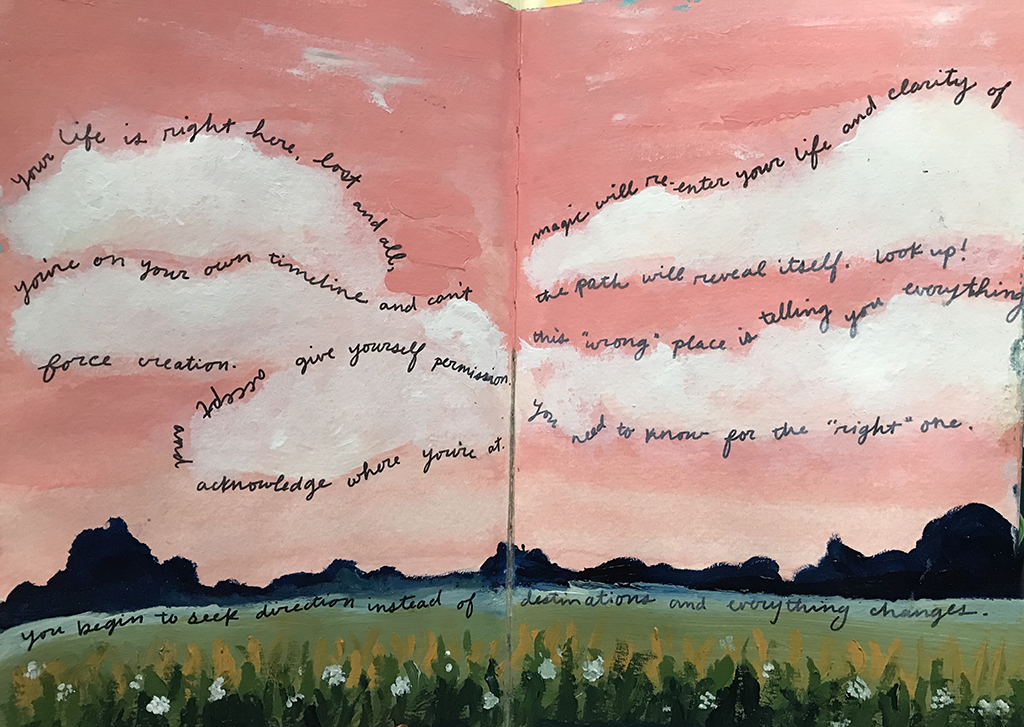 your life is right here, lost and all.
you're on your own timeline and can't
force creation.
give yourself permission.
accept
and
acknowledge where you're at.
magic will re-enter your life and clarity of
the path will reveal itself. look up!
this "wrong" place is telling you everything
you need to know for the "right" one.
you begin to seek direction instead of destinations and everything changes.